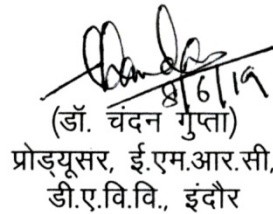 8/6/19
(डॉ. चंदन गुप्ता)
प्रोड्यूसर, ई.एम.आर.सी,
डी.ए.वि.वि., इंदौर